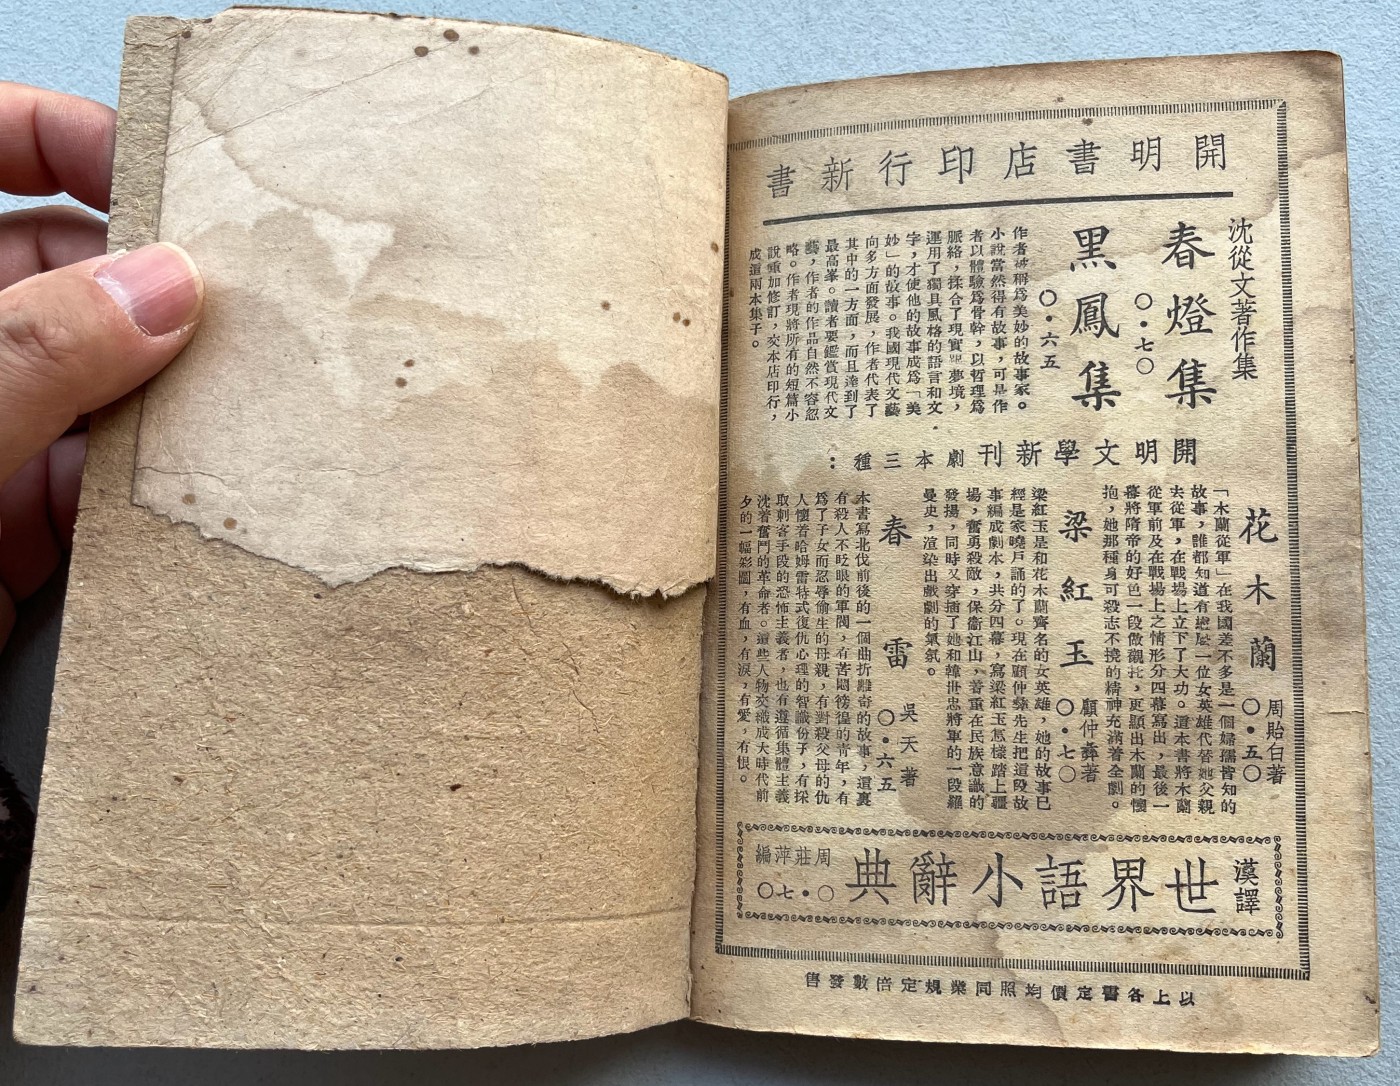 開明書店印行新書
沈從文著作集
春燈集
〇・七〇
黑鳳集
〇・六五
作者被稱爲美妙的故事家。
小說當然得有故事，可是作
者以體驗爲骨幹，以哲理爲
脈絡，揉合了現實與夢境，
運用了獨具風格的語言和文
字，才使他的故事成爲「美
妙」的故事。我國現代文藝
向多方面發展，作者代表了
其中的一方面，而且達到了
最高峯。讀者要鑑賞現代文
藝，作者的作品自然不容忽
略。作者現將所有的短篇小
說重加修訂，交本店印行，
成這兩本集子。
開明文學新刊劇本三種：
花木蘭
周貽白著
〇・五〇
「木蘭從軍」在我國差不多是一個婦孺皆知的
故事，誰都知道有這麼一位女英雄代替她父親
去從軍，在戰場上立下了大功。這本書將木蘭
從軍前及在戰場上之情形分四幕寫出，最後一
幕將隋帝的好色一段做襯托，更顯出木蘭的懷
抱，她那種身可殺志不撓的精神充滿着全劇。
梁紅玉
顧仲彝著
〇・七〇
梁紅玉是和花木蘭齊名的女英雄，她的故事已
經是家曉戶誦的了。現在顧仲彝先生把這段故
事編成劇本，共分四幕，寫梁紅玉怎樣踏上疆
場，奮勇殺敵，保衞江山，着重在民族意識的
發揚，同時又穿插了她和韓世忠將軍的一段羅
曼史，渲染出戲劇的氣氛。
春雷
吳天著
〇・六五
本書寫北伐前後的一個曲折離奇的故事，這裏
有殺人不眨眼的軍閥，有苦悶徬徨的青年，有
爲了子女而忍辱偷生的母親，有對殺父母的仇
人懷着哈姆雷特式復仇心理的智識份子，有採
取刺客手段的恐怖主義者，也有遵循集體主義
沈着奮鬥的革命者。這些人物交織成大時代前
夕的一幅彩圖，有血，有淚，有愛，有恨。
漢譯
世界語小辭典
周莊萍編
〇・七〇
以上各書定價均照同業規定倍數發售